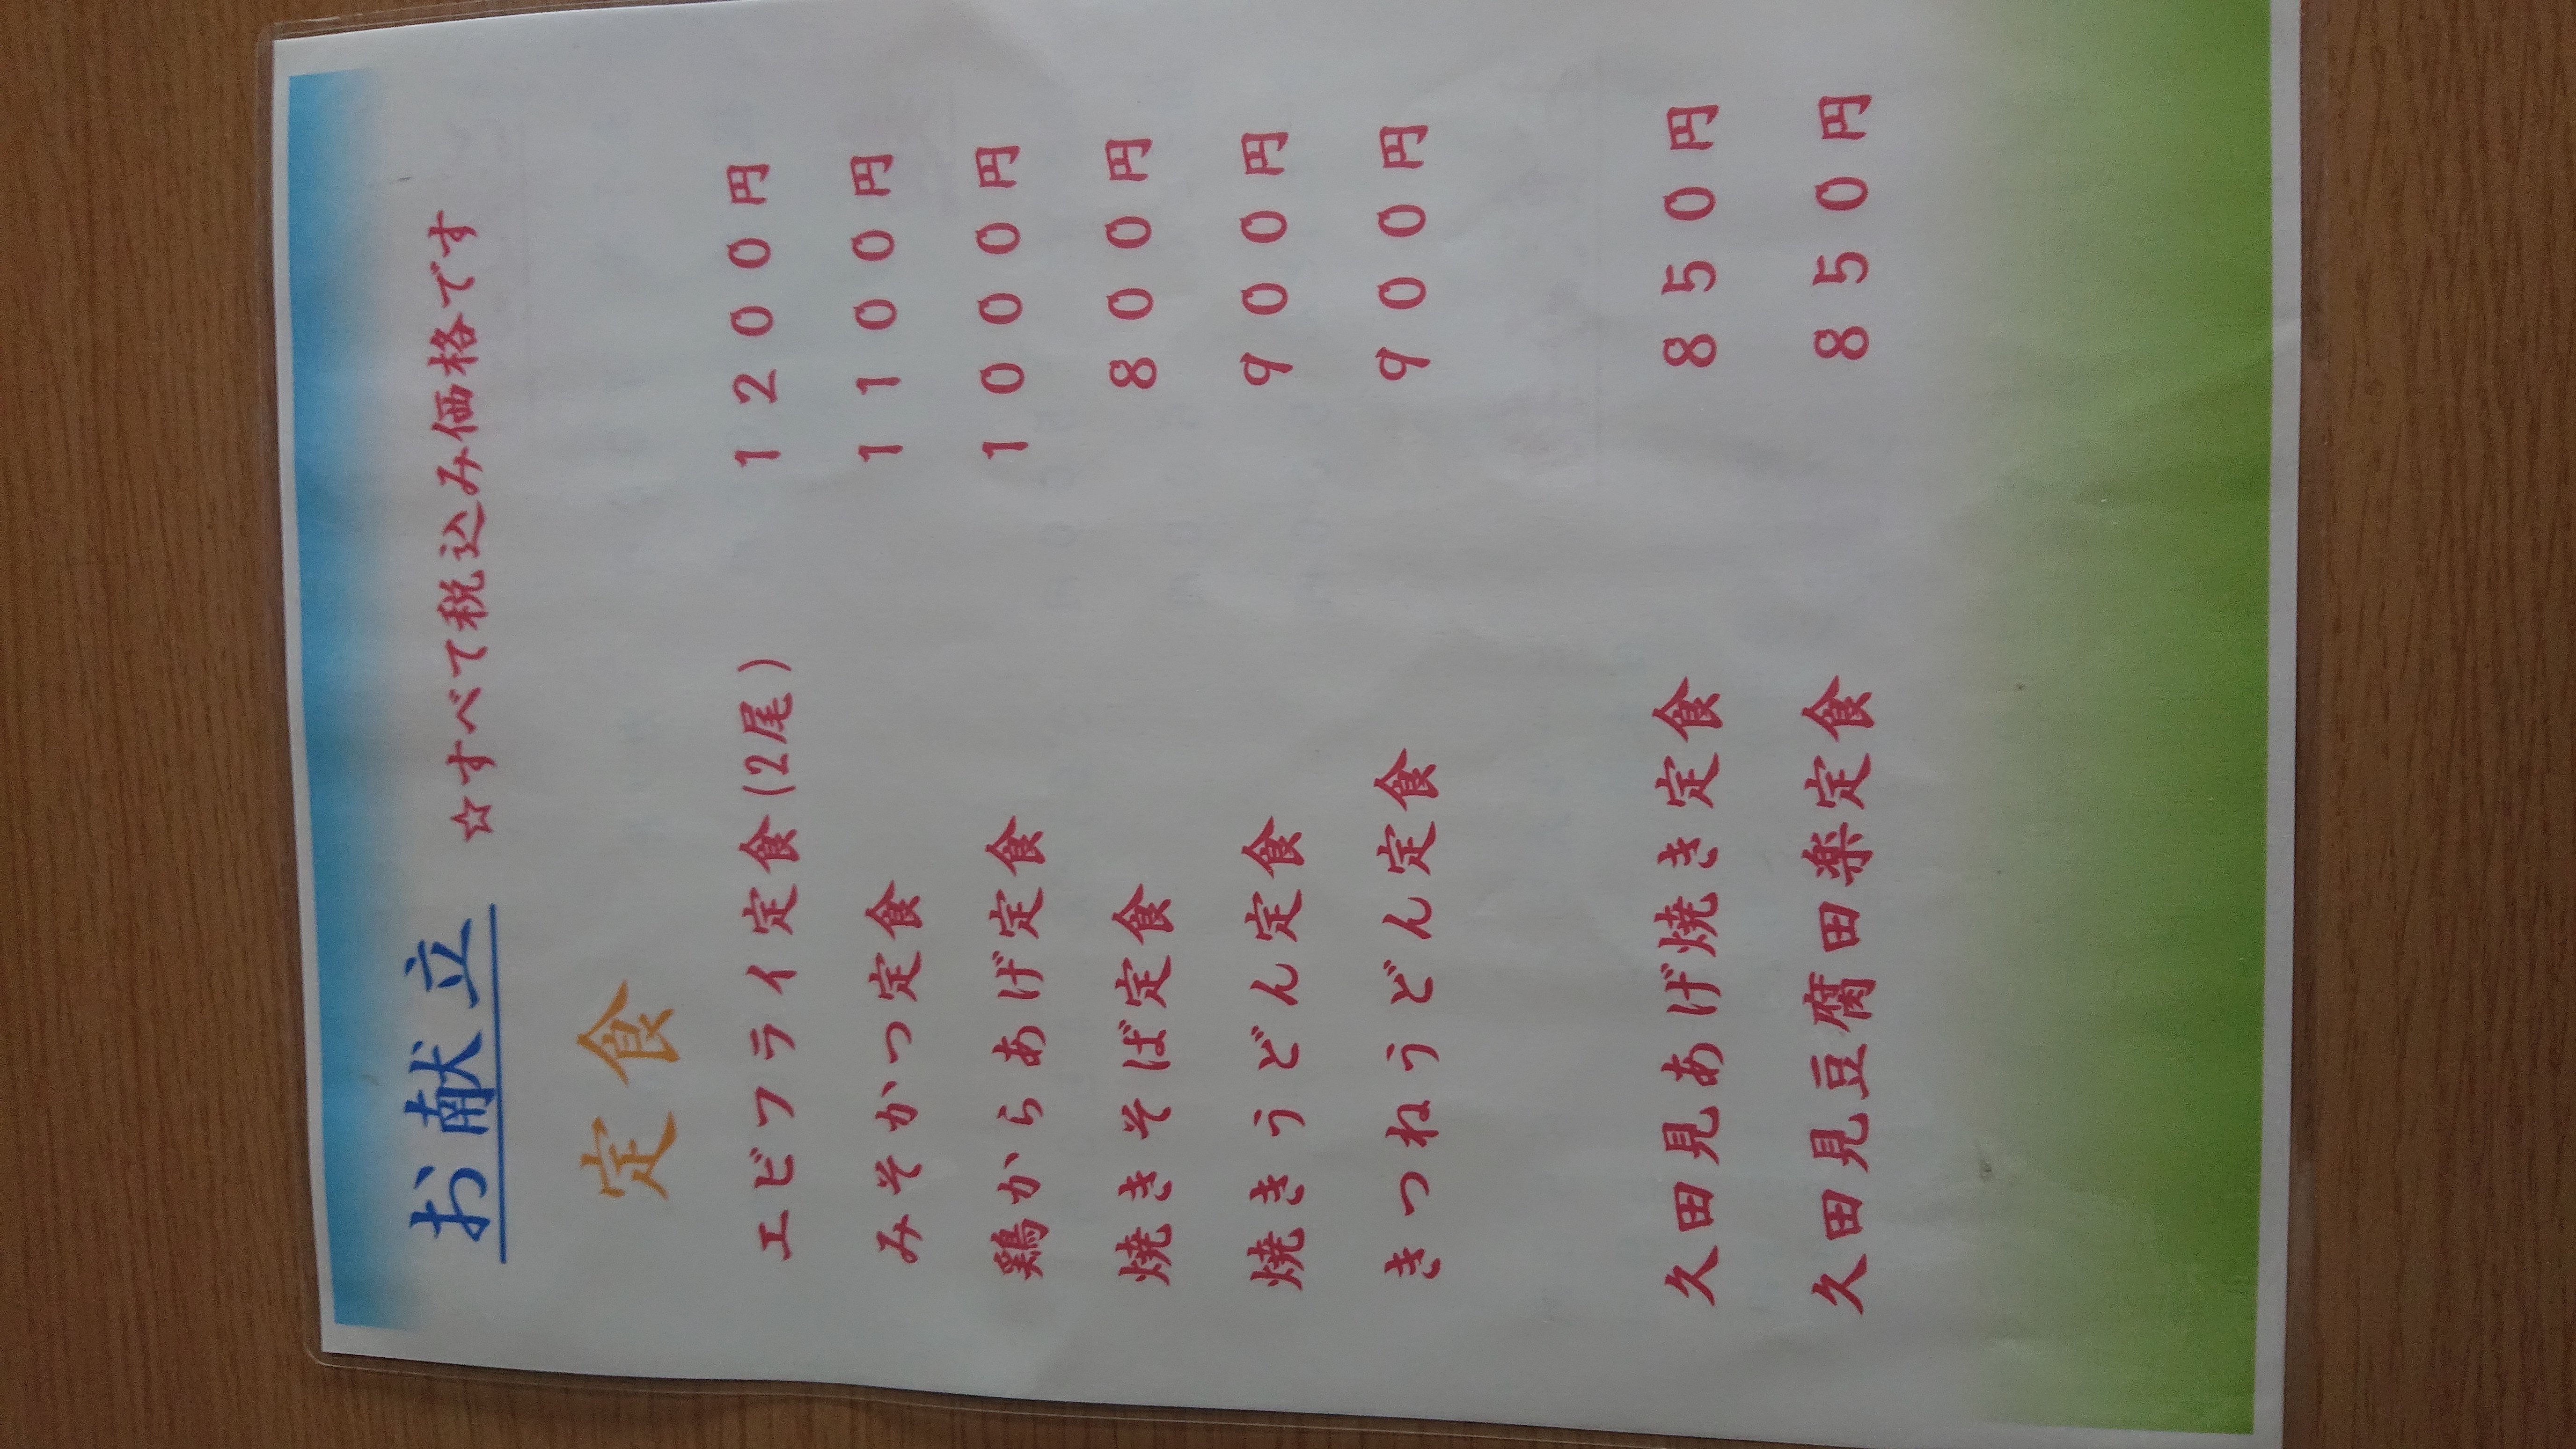 お献立 ☆すべて税込み価格です
定食
エビフライ定食(2尾) 1200円
みそかつ定食 1100円
鶏からあげ定食 1000円
焼きそば定食 800円
焼きうどん定食 900円
きつねうどん定食 900円
久田見あげ焼き定食 850円
久田見豆腐田楽定食 850円